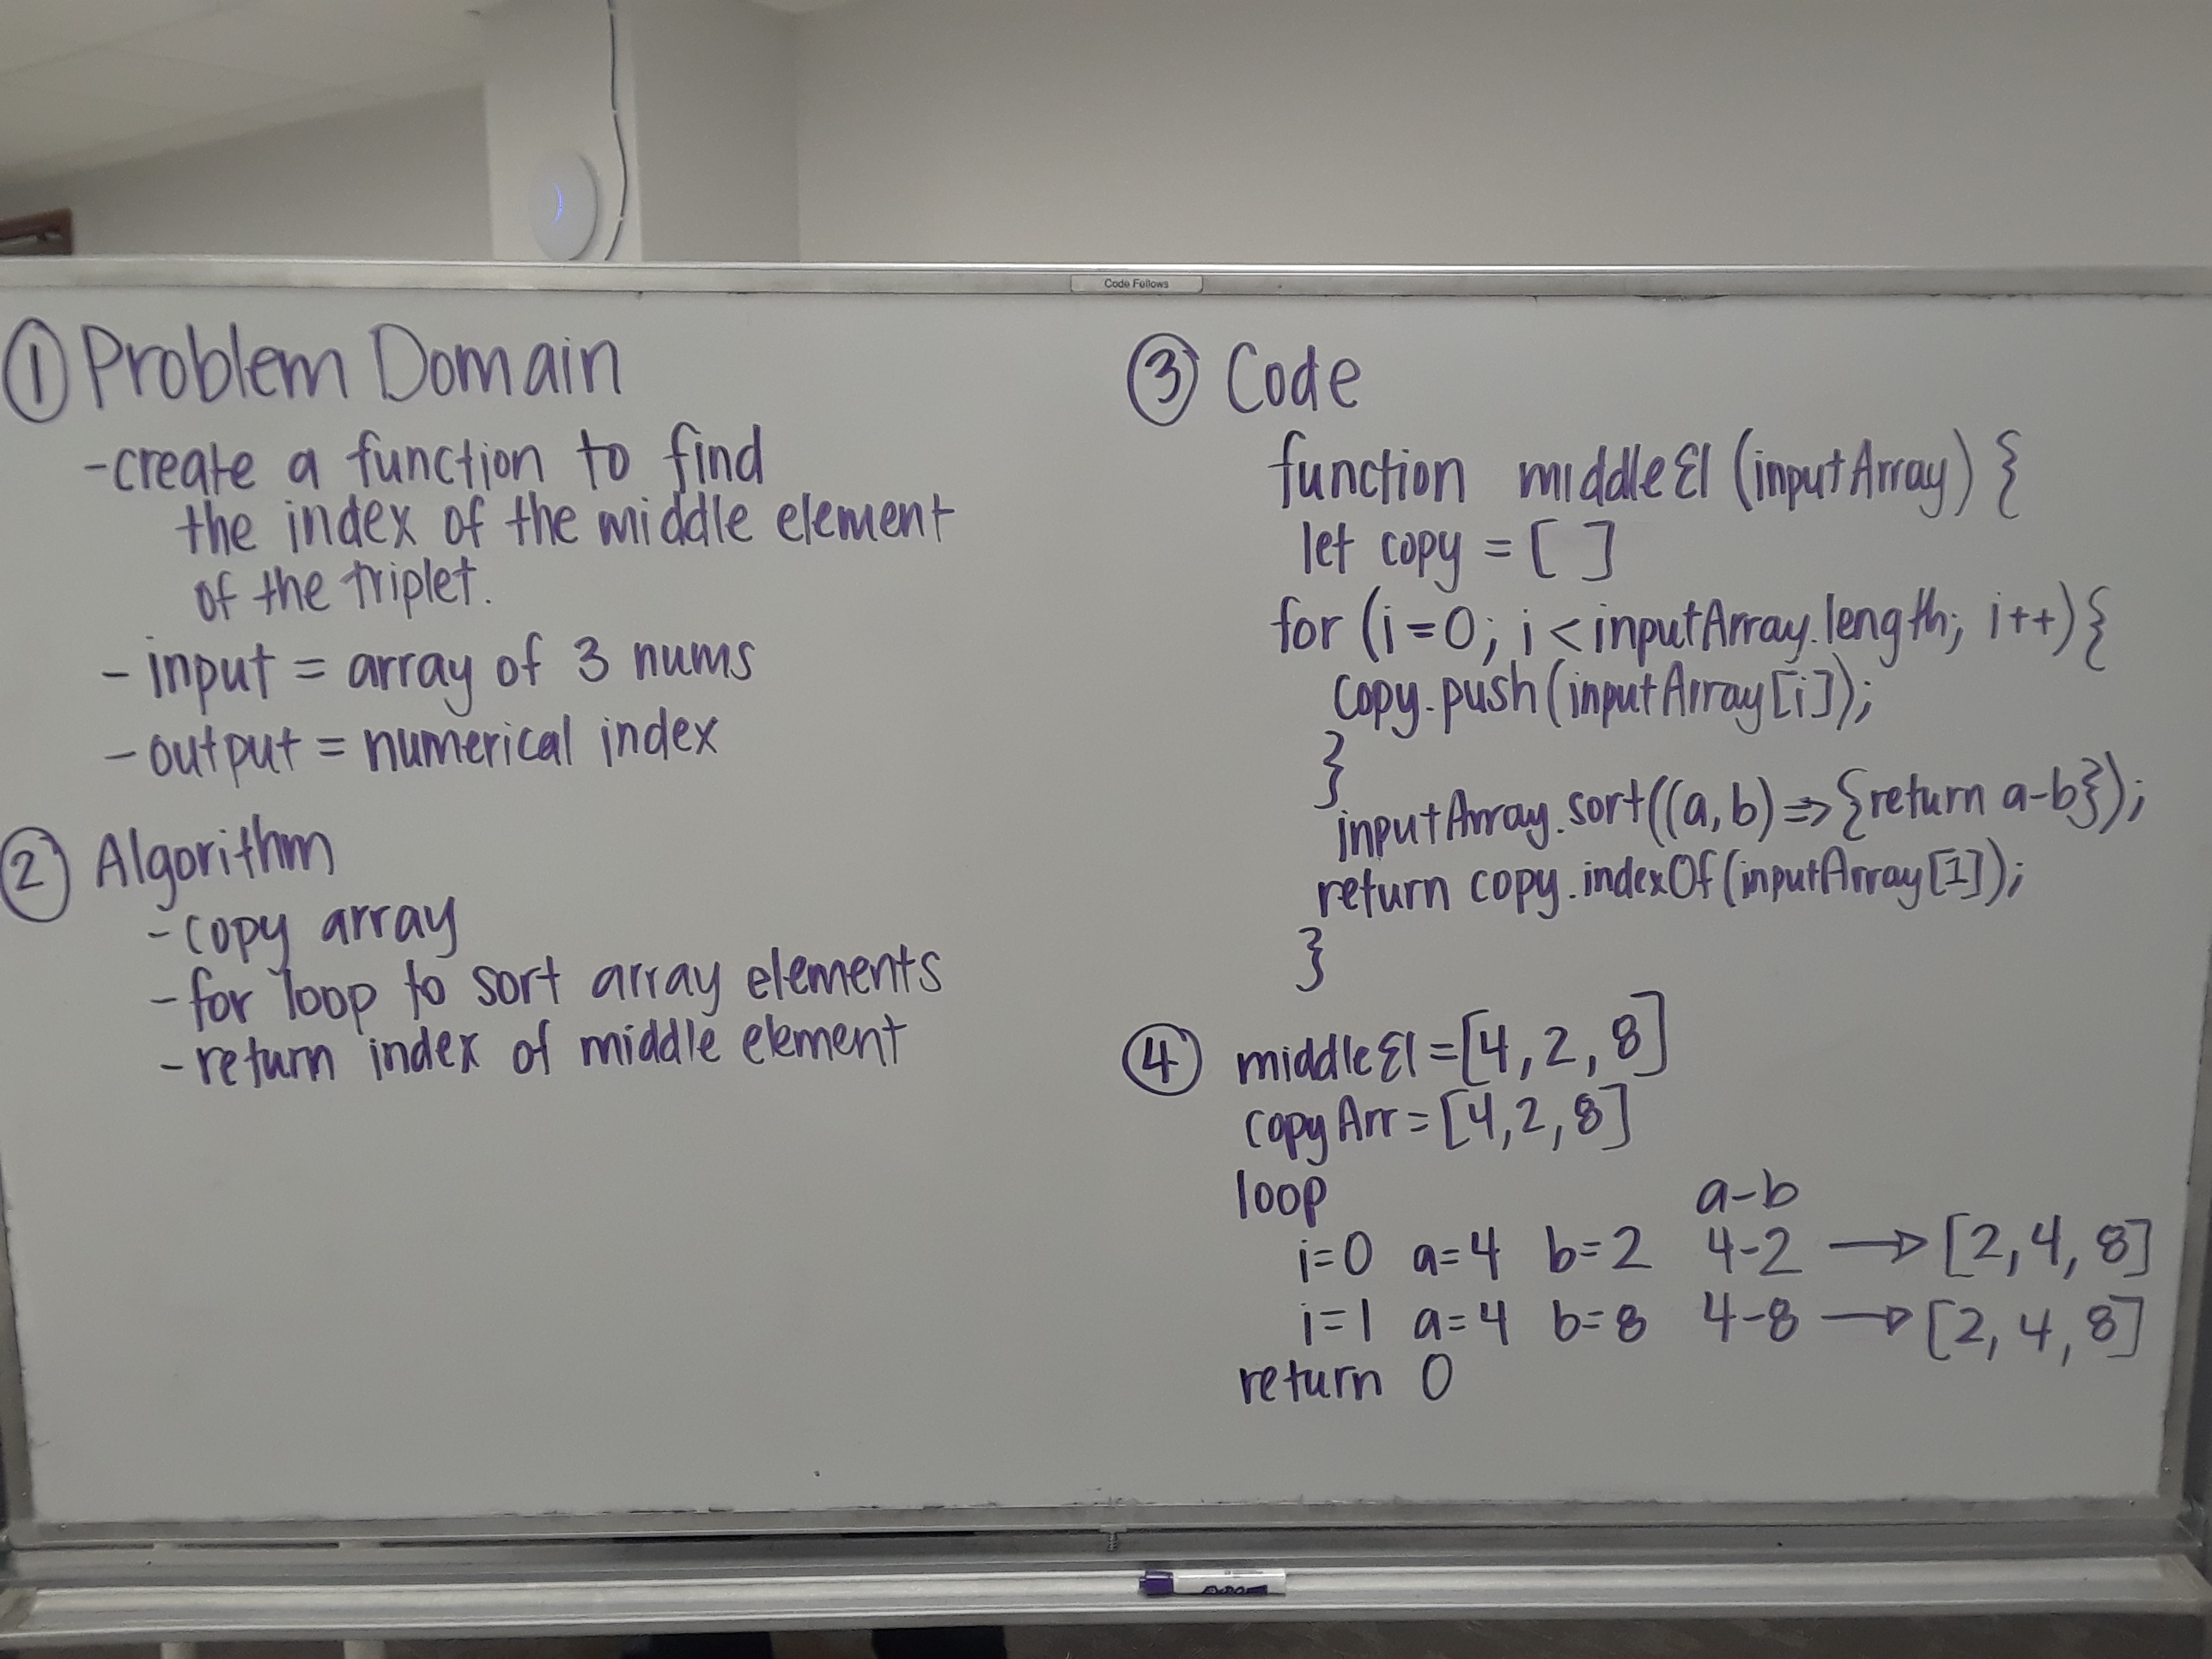 Code Fellows
① Problem Domain
-create a function to find
the index of the middle element
of the triplet.
- input = array of 3 nums
- output = numerical index
② Algorithm
- copy array
- for loop to sort array elements
- return index of middle element
③ Code
function middleEl (inputArray) {
let copy = [ ]
for (i=0; i < inputArray.length; i++) {
copy.push(inputArray[i]);
}
inputArray.sort((a,b) => {return a-b});
return copy.indexOf(inputArray[1]);
}
④ middleEl = [4, 2, 8]
copyArr = [4, 2, 8]
loop a-b
i=0 a=4 b=2 4-2 → [2, 4, 8]
i=1 a=4 b=8 4-8 → [2, 4, 8]
return 0